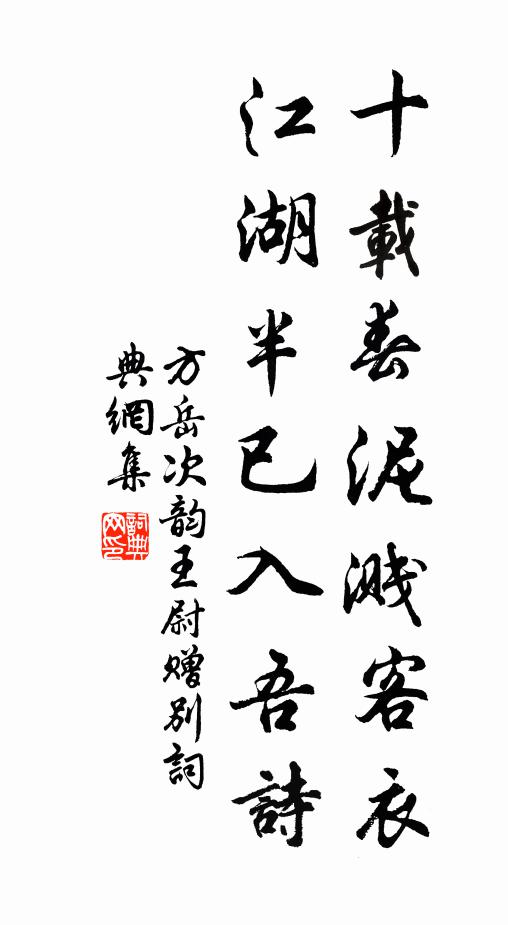 十載春泥溅客衣
江湖半已入吾詩
方岳次韵王尉赠别詞
典網集
詞典網印